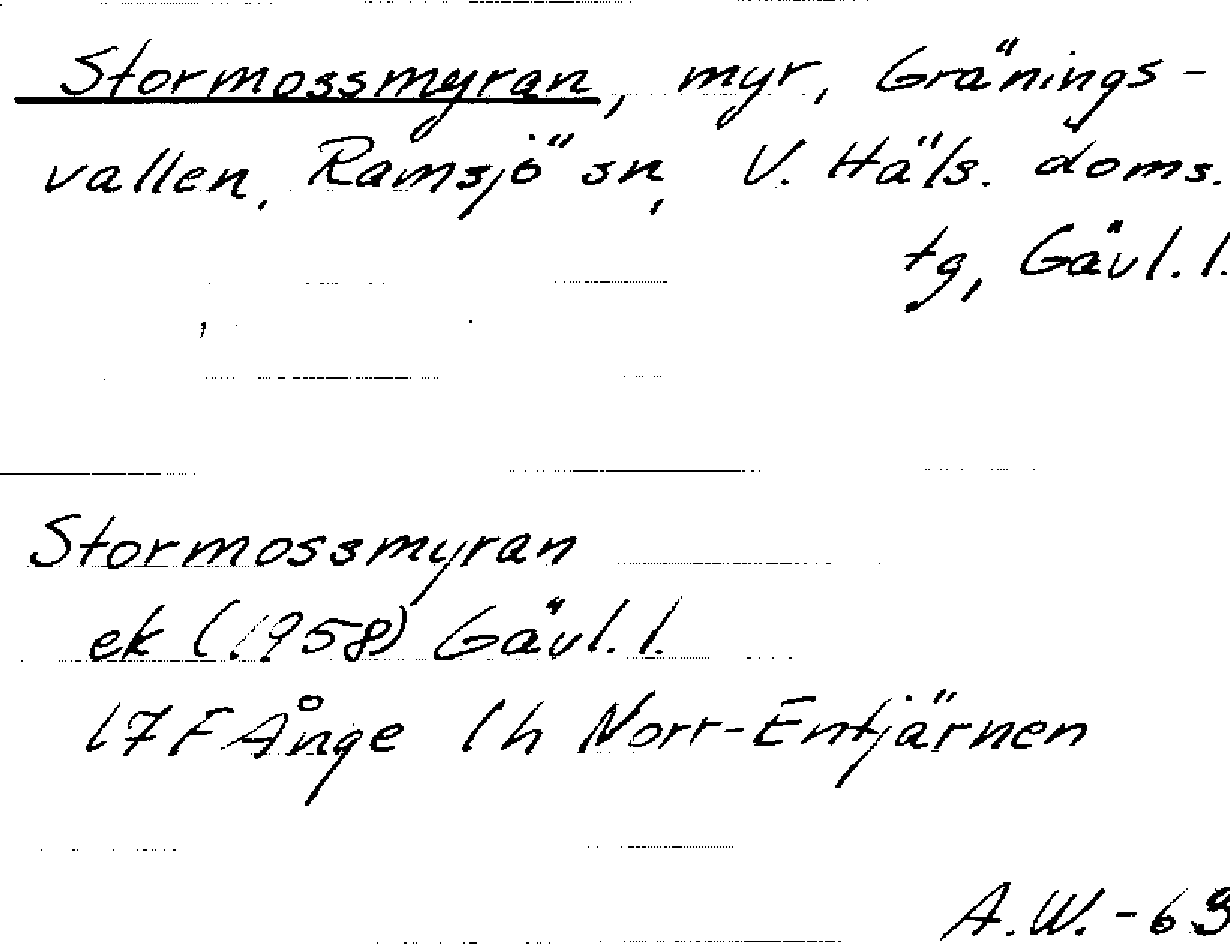 Stormossmyran, myr, Gränings-
vallen, Ramsjö sn, V. Häls. doms.
tg, Gävl. l.
Stormossmyran
ek (1958) Gävl. l.
17 F Ånge 1h Norr-Entjärnen
A.W. -69